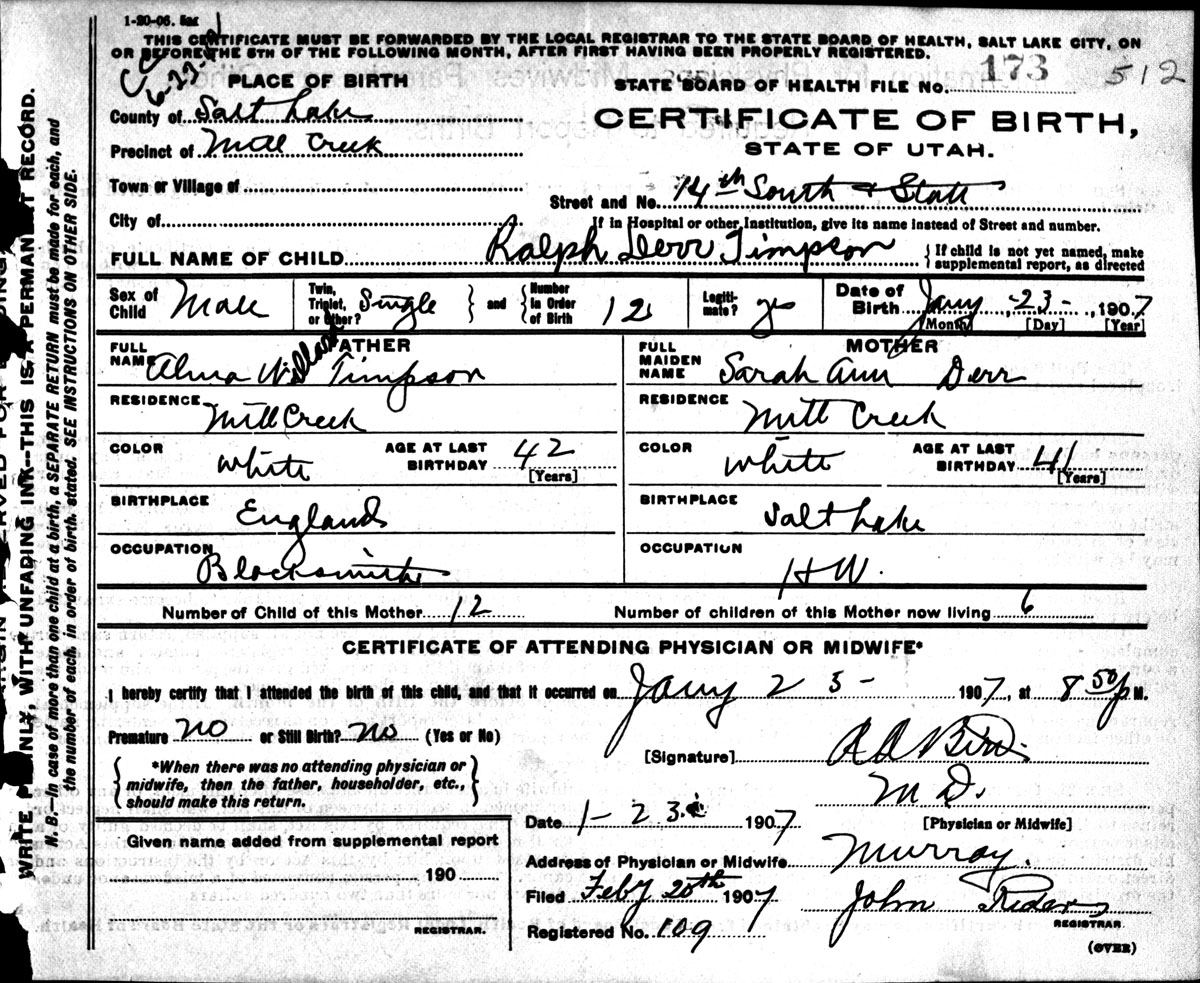 1-20-06. 5xx
THIS CERTIFICATE MUST BE FORWARDED BY THE LOCAL REGISTRAR TO THE STATE BOARD OF HEALTH, SALT LAKE CITY, ON
OR BEFORE THE 5TH OF THE FOLLOWING MONTH, AFTER FIRST HAVING BEEN PROPERLY REGISTERED.
PLACE OF BIRTH
STATE BOARD OF HEALTH FILE NO. 173 512
County of Salt Lake
CERTIFICATE OF BIRTH,
Precinct of Mill Creek
STATE OF UTAH.
Town or Village of
Street and No. 14th South & State
City of
If in Hospital or other Institution, give its name instead of Street and number.
FULL NAME OF CHILD Ralph Derr Timpson
{If child is not yet named, make
supplemental report, as directed
Sex of Child Male
Twin, Triplet, or Other? Single } and { Number in Order of Birth 12
Legitimate? yes
Date of Birth Jany 23 - 1907
[Month] [Day] [Year]
FATHER
FULL NAME Alma Willard Timpson
RESIDENCE Mill Creek
COLOR White AGE AT LAST BIRTHDAY 42 [Years]
BIRTHPLACE England
OCCUPATION Blacksmith
MOTHER
FULL MAIDEN NAME Sarah Ann Derr
RESIDENCE Mill Creek
COLOR White AGE AT LAST BIRTHDAY 41 [Years]
BIRTHPLACE Salt Lake
OCCUPATION H.W.
Number of Child of this Mother 12 Number of children of this Mother now living 6
CERTIFICATE OF ATTENDING PHYSICIAN OR MIDWIFE*
I hereby certify that I attended the birth of this child, and that it occurred on Jany 23 - 1907, at 8 50 P M.
Premature no or Still Birth? no (Yes or No)
[Signature]
M D.
[Physician or Midwife]
{ *When there was no attending physician or
midwife, then the father, householder, etc.,
should make this return. }
Date 1-23 1907
Address of Physician or Midwife Murray.
Filed Feby 20th 1907 John
REGISTRAR.
Registered No. 109
(OVER)
Given name added from supplemental report
190
REGISTRAR.
WRITE PLAINLY, WITH UNFADING INK--THIS IS A PERMANENT RECORD.
N. B.--In case of more than one child at a birth, a SEPARATE RETURN must be made for each, and
the number of each, in order of birth, stated. SEE INSTRUCTIONS ON OTHER SIDE.